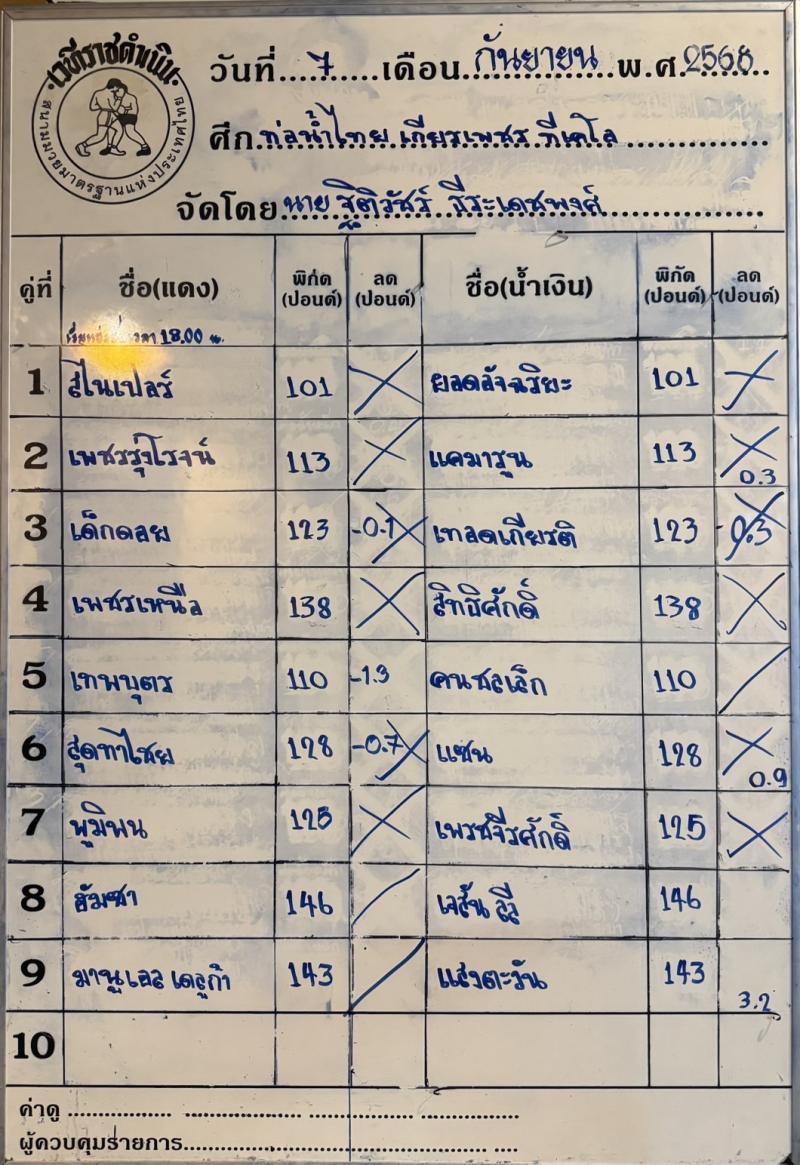 เวทีราชดำเนิน
สนามมวยมาตรฐานแห่งประเทศไทย
วันที่ 7 เดือน กันยายน พ.ศ. 2568
ศึก ท่อน้ำไทย เกียรเพชร ทีเคโอ
จัดโดย นาย ฐิติวัชร์ ธีระเดชพงศ์
คู่ที่ ชื่อ(แดง) พิกัด (ปอนด์) ลด (ปอนด์) ชื่อ(น้ำเงิน) พิกัด (ปอนด์) ลด (ปอนด์)
เวลา 18.00 น.
1 สไนเปอร์ 101 ยอดอัจฉริยะ 101
2 เพชรรุ่งโรจน์ 113 แคมารูน 113 0.3
3 เด็กดอย 123 -0.1 เทอดเกียรติ 123 -0.3
4 เพชรเหนือ 138 สิทธิศักดิ์ 138
5 เทพบุตร 110 -1.3 คนชลเล็ก 110
6 สุดทาไชย 128 -0.7 แชน 128 0.9
7 พูมิพน 125 เพรชจีรศักดิ์ 125
8 ฮัมซา 146 เจสั้น ลี 146
9 มานูเอล เดลูก้า 143 แสงตะวัน 143 3.2
10
ค่าดู
ผู้ควบคุมรายการ